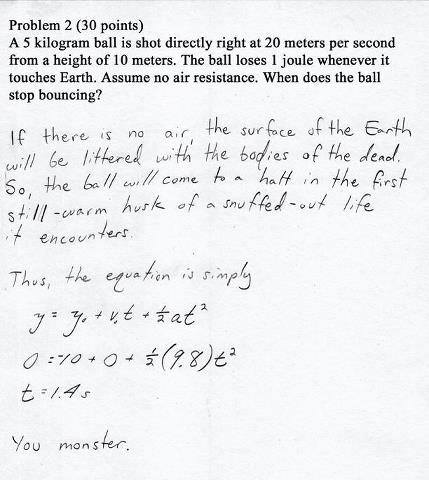 Problem 2 (30 points)
A 5 kilogram ball is shot directly right at 20 meters per second
from a height of 10 meters. The ball loses 1 joule whenever it
touches Earth. Assume no air resistance. When does the ball
stop bouncing?
If there is no air, the surface of the Earth
will be littered with the bodies of the dead.
So, the ball will come to a halt in the first
still-warm husk of a snuffed-out life
it encounters.
Thus, the equation is simply
y = y₀ + v₁t + ½at²
0 = -10 + 0 + ½(9.8)t²
t = 1.4s
You monster.